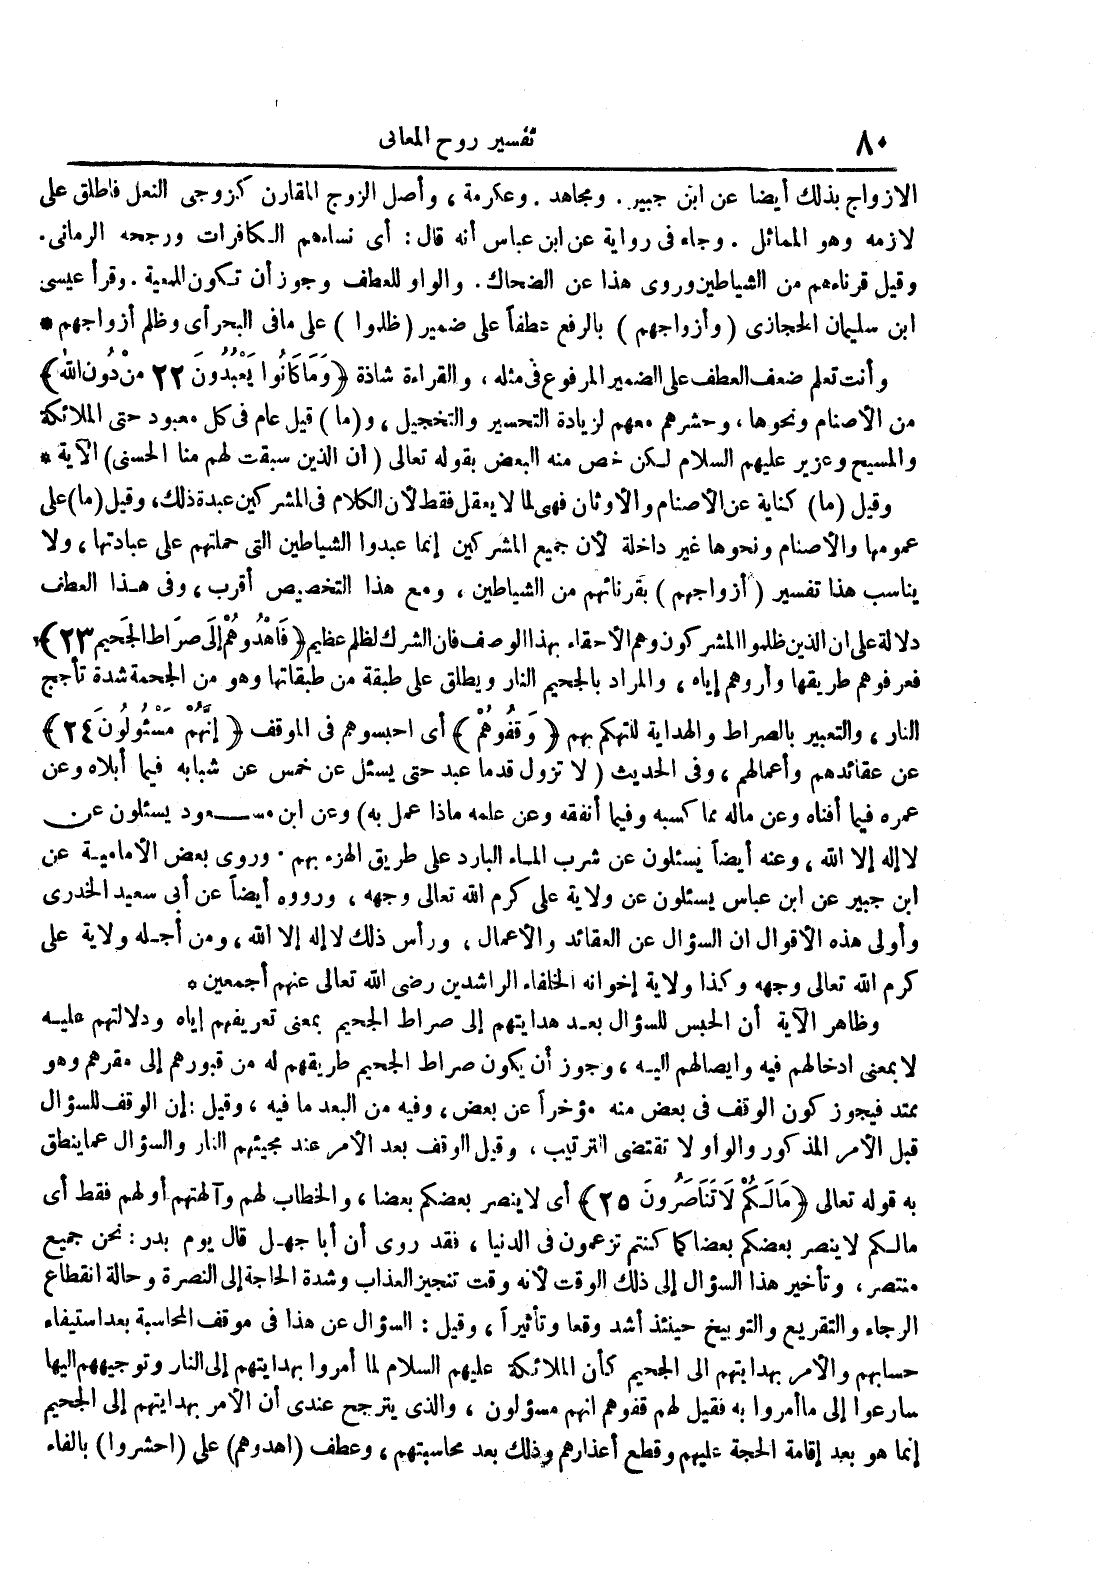 ٨٠
تفسير روح المعانى
الازواج بذلك أيضا عن ابن جبير. ومجاهد. وعكرمة ، وأصل الزوج المقارن كزوجى النعل فاطلق على
لازمه وهو المماثل . وجاء فى رواية عن ابن عباس أنه قال : أى نساءهم الكافرات ورجحه الرمانى.
وقيل قرناءهم من الشياطين وروى هذا عن الضحاك. والواو للعطف وجوز أن تكون للمعية . وقرأ عيسى
ابن سليمان الحجازى ( وأزواجهم ) بالرفع عطفاً على ضمير ( ظلموا ) على مافى البحر أى وظلم أزواجهم *
وأنت تعلم ضعف العطف على الضمير المرفوع فى مثله ، والقراءة شاذة ﴿ وَمَا كَانُوا يَعْبُدُونَ ٢٢ منْ دُون اللهُ ﴾
من الأصنام ونحوها ، وحشرهم معهم لزيادة التحسير والتخجيل ، و(ما) قيل عام فى كل معبود حتى الملائكة
والمسيح وعزير عليهم السلام لكن خص منه البعض بقوله تعالى ( ان الذين سبقت لهم منا الحسنى) الآية *
وقيل (ما) كناية عن الأصنام والأوثان فهى لما لا يعقل فقط لأن الكلام فى المشركين عبدة ذلك، وقيل (ما) على
عمومها والأصنام ونحوها غير داخلة لأن جميع المشركين إنما عبدوا الشياطين التى حملتهم على عبادتها ، ولا
يناسب هذا تفسير ( أزواجهم ) بقرنائهم من الشياطين ، ومع هذا التخصيص أقرب ، وفى هذا العطف
دلالة على ان الذين ظلموا المشركون وهم الأحقاء بهذا الوصف فان الشرك لظلم عظيم ﴿ فَاهْدُوهُمْ إلَى صرَاط الجَحيم ٢٣ ﴾
فعرفوهم طريقها وأروهم إياه ، والمراد بالجحيم النار ويطلق على طبقة من طبقاتها وهو من الجحمة شدة تأجج
النار ، والتعبير بالصراط والهداية للتهكم بهم ﴿ وَقفُوهُمْ ﴾ أى احبسوهم فى الموقف ﴿ إنَّهُمْ مَسْئُولُونَ ٢٤ ﴾
عن عقائدهم وأعمالهم ، وفى الحديث ( لا تزول قدما عبد حتى يسئل عن خمس عن شبابه فيما أبلاه وعن
عمره فيما أفناه وعن ماله مما كسبه وفيما أنفقه وعن علمه ماذا عمل به) وعن ابن مسعود يسئلون عن
لا إله إلا الله ، وعنه أيضاً يسئلون عن شرب الماء البارد على طريق الهزء بهم . وروى بعض الامامية عن
ابن جبير عن ابن عباس يسئلون عن ولاية على كرم الله تعالى وجهه ، ورووه أيضاً عن أبى سعيد الخدرى
وأولى هذه الأقوال ان السؤال عن العقائد والأعمال ، ورأس ذلك لا إله إلا الله ، ومن أجله ولاية على
كرم الله تعالى وجهه وكذا ولاية إخوانه الخلفاء الراشدين رضى الله تعالى عنهم أجمعين *
وظاهر الآية أن الحبس للسؤال بعد هدايتهم إلى صراط الجحيم بمعنى تعريفهم إياه ودلالتهم عليه
لا بمعنى ادخالهم فيه وايصالهم اليه ، وجوز أن يكون صراط الجحيم طريقهم له من قبورهم إلى مقرهم وهو
ممتد فيجوز كون الوقف فى بعض منه مؤخراً عن بعض ، وفيه من البعد ما فيه ، وقيل : إن الوقف للسؤال
قبل الأمر المذكور والواو لا تقتضى الترتيب ، وقيل الوقف بعد الأمر عند مجيئهم النار والسؤال عما ينطق
به قوله تعالى ﴿ مَالَكُمْ لَا تَنَاصَرُونَ ٢٥ ﴾ أى لا ينصر بعضكم بعضا ، والخطاب لهم وآلهتهم أو لهم فقط أى
مالكم لا ينصر بعضكم بعضا كما كنتم تزعمون فى الدنيا ، فقد روى أن أبا جهل قال يوم بدر : نحن جميع
منتصر ، وتأخير هذا السؤال إلى ذلك الوقت لأنه وقت تنجيز العذاب وشدة الحاجة إلى النصرة وحالة انقطاع
الرجاء والتقريع والتوبيخ حينئذ أشد وقعا وتأثيراً ، وقيل : السؤال عن هذا فى موقف المحاسبة بعد استيفاء
حسابهم والأمر بهدايتهم الى الجحيم كأن الملائكة عليهم السلام لما أمروا بهدايتهم إلى النار وتوجيههم اليها
سارعوا إلى ما أمروا به فقيل لهم قفوهم انهم مسؤلون ، والذى يترجح عندى أن الأمر بهدايتهم إلى الجحيم
إنما هو بعد إقامة الحجة عليهم وقطع أعذارهم وذلك بعد محاسبتهم ، وعطف (اهدوهم) على (احشروا) بالفاء